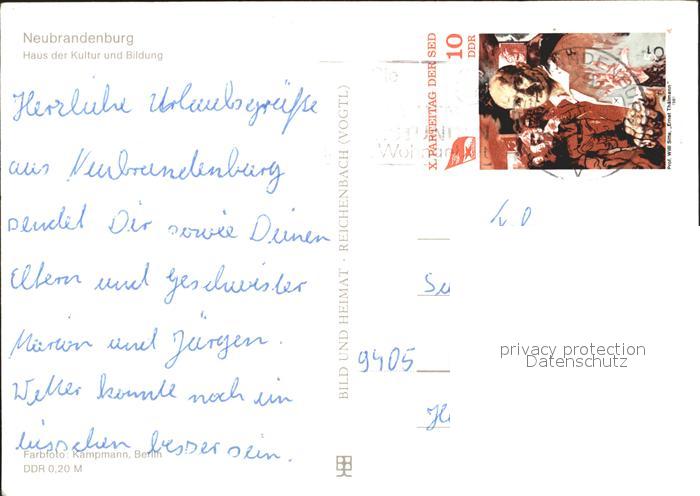 Neubrandenburg
Haus der Kultur und Bildung
Herzliche Urlaubsgrüße
aus Neubrandenburg
sendet Dir sowie Deinen
Eltern und Geschwister
Marion und Jürgen.
Wetter könnte noch ein
bisschen besser sein.
Farbfoto: Kampmann, Berlin
DDR 0,20 M
BILD UND HEIMAT · REICHENBACH (VOGTL)
X. PARTEITAG DER SED
10
DDR
Prof. Willi Sitte, „Ernst Thälmann"
1981
9405
privacy protection
Datenschutz